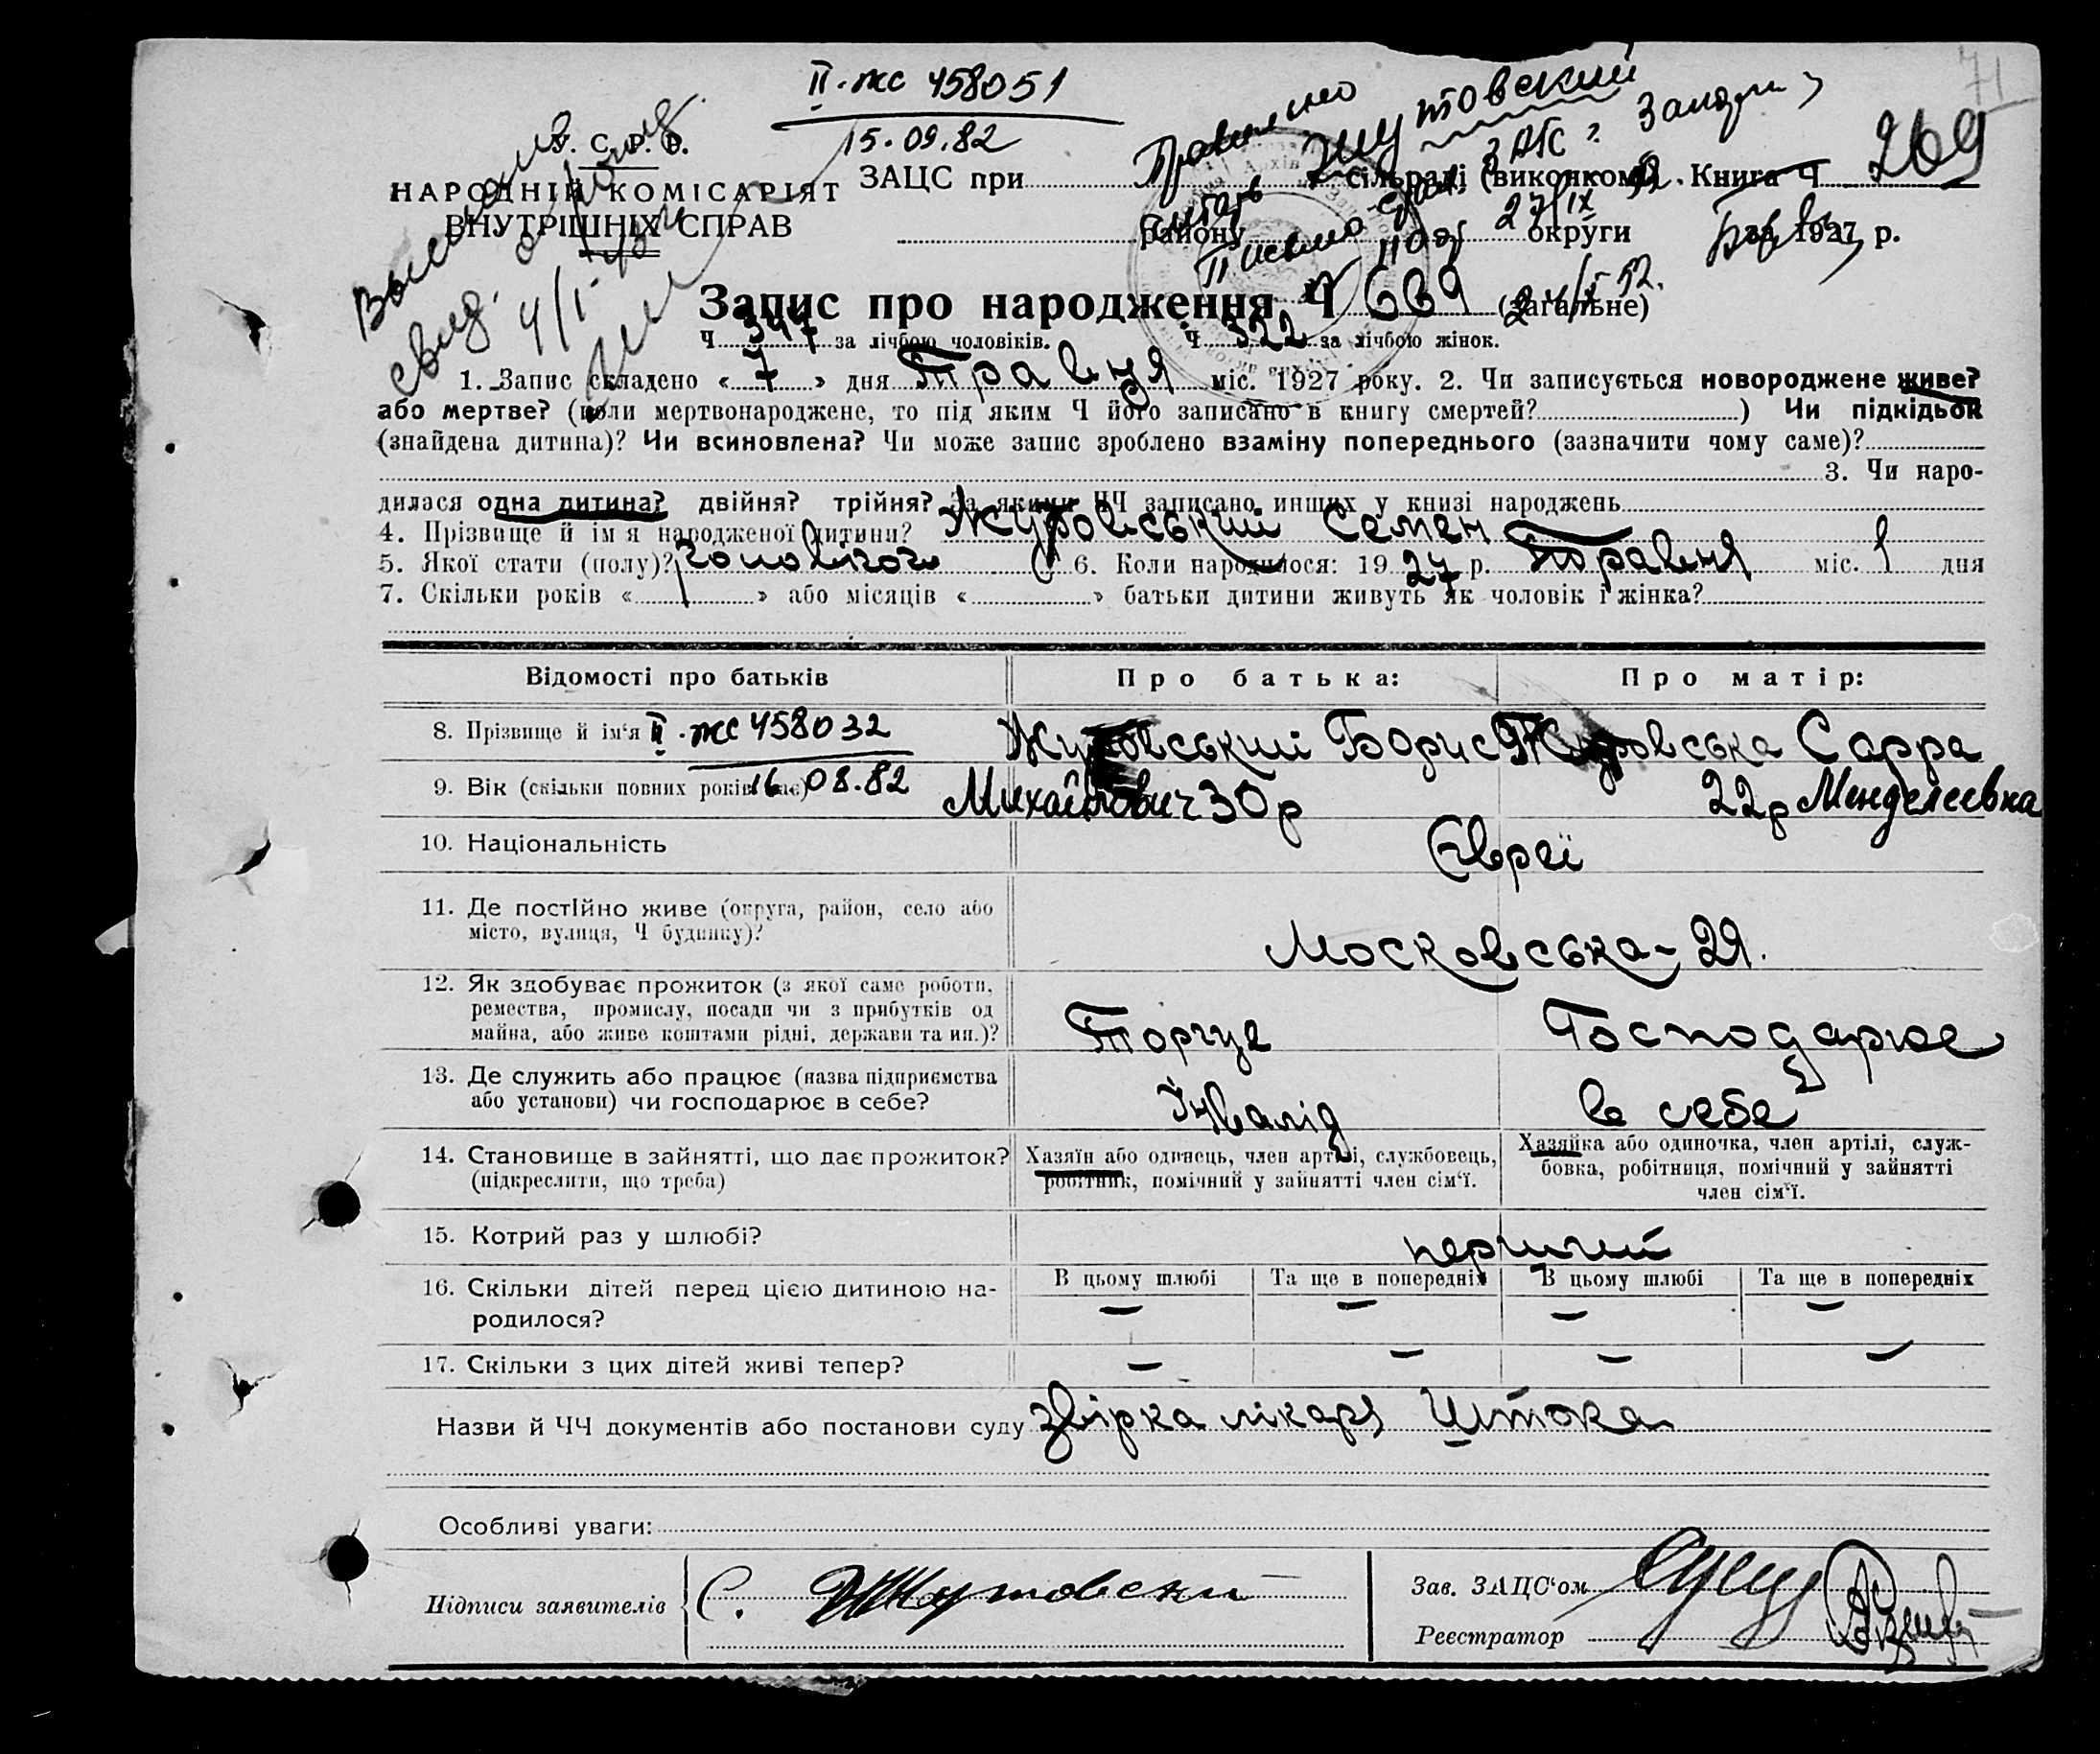 II-жс 458051
15.09.82
71
У. С. Р. Р.
НАРОДНІЙ КОМІСАРІЯТ
ВНУТРІШНІХ СПРАВ
свид. 4/I-
Правильно Жутовский
Читать
ЗАГС
Письмо
27/IX 52.
24/X 52.
ЗАЦС при сільраді (виконкомі) Книга Ч 269
району округи за 1927 р.
Запис про народження Ч 669 (загальне)
Ч 347 за лічбою чоловіків. Ч 322 за лічбою жінок.
1. Запис складено « 7 » дня Травня міс. 1927 року. 2. Чи записується новороджене живе?
або мертве? (коли мертвонароджене, то під яким Ч його записано в книгу смертей? ) Чи підкідьок
(знайдена дитина)? Чи всиновлена? Чи може запис зроблено взаміну попереднього (зазначити чому саме)?
3. Чи наро-
дилася одна дитина? двійня? трійня? За якими ЧЧ записано инших у книзі народжень
4. Прізвище й ім'я народженої дитини? Журовський Семен
5. Якої стати (полу)? чоловічого 6. Коли народилося: 1927 р. Травня міс. 1 дня
7. Скільки років « 1 » або місяців « » батьки дитини живуть як чоловік і жінка?
Відомості про батьків Про батька: Про матір:
8. Прізвище й ім'я II-жс 458032 Борис Журовська Сарра
9. Вік (скільки повних років має) 16.08.82 Михайлович 30 р 22 р Менделеевна
10. Національність Євреї
11. Де постійно живе (округа, район, село або
місто, вулиця, Ч будинку)? Московська - 29.
12. Як здобуває прожиток (з якої саме роботи,
ремества, промислу, посади чи з прибутків од
майна, або живе коштами рідні, держави та ин.)? Торгує Господарює
13. Де служить або працює (назва підприємства
або установи) чи господарює в себе? Інвалід в себе
14. Становище в зайнятті, що дає прожиток?
(підкреслити, що треба)
Хазяїн або одинець, член артілі, службовець,
робітник, помічний у зайнятті член сім'ї.
Хазяйка або одиночка, член артілі, служ-
бовка, робітниця, помічний у зайнятті
член сім'ї.
15. Котрий раз у шлюбі? перший
В цьому шлюбі Та ще в попередніх В цьому шлюбі Та ще в попередніх
16. Скільки дітей перед цією дитиною на-
родилося? — — — —
17. Скільки з цих дітей живі тепер? — — — —
Назви й ЧЧ документів або постанови суду звірка лікаря Штока
Особливі уваги:
Підписи заявителів С. Жутовски
Зав. ЗАЦС'ом
Реєстратор